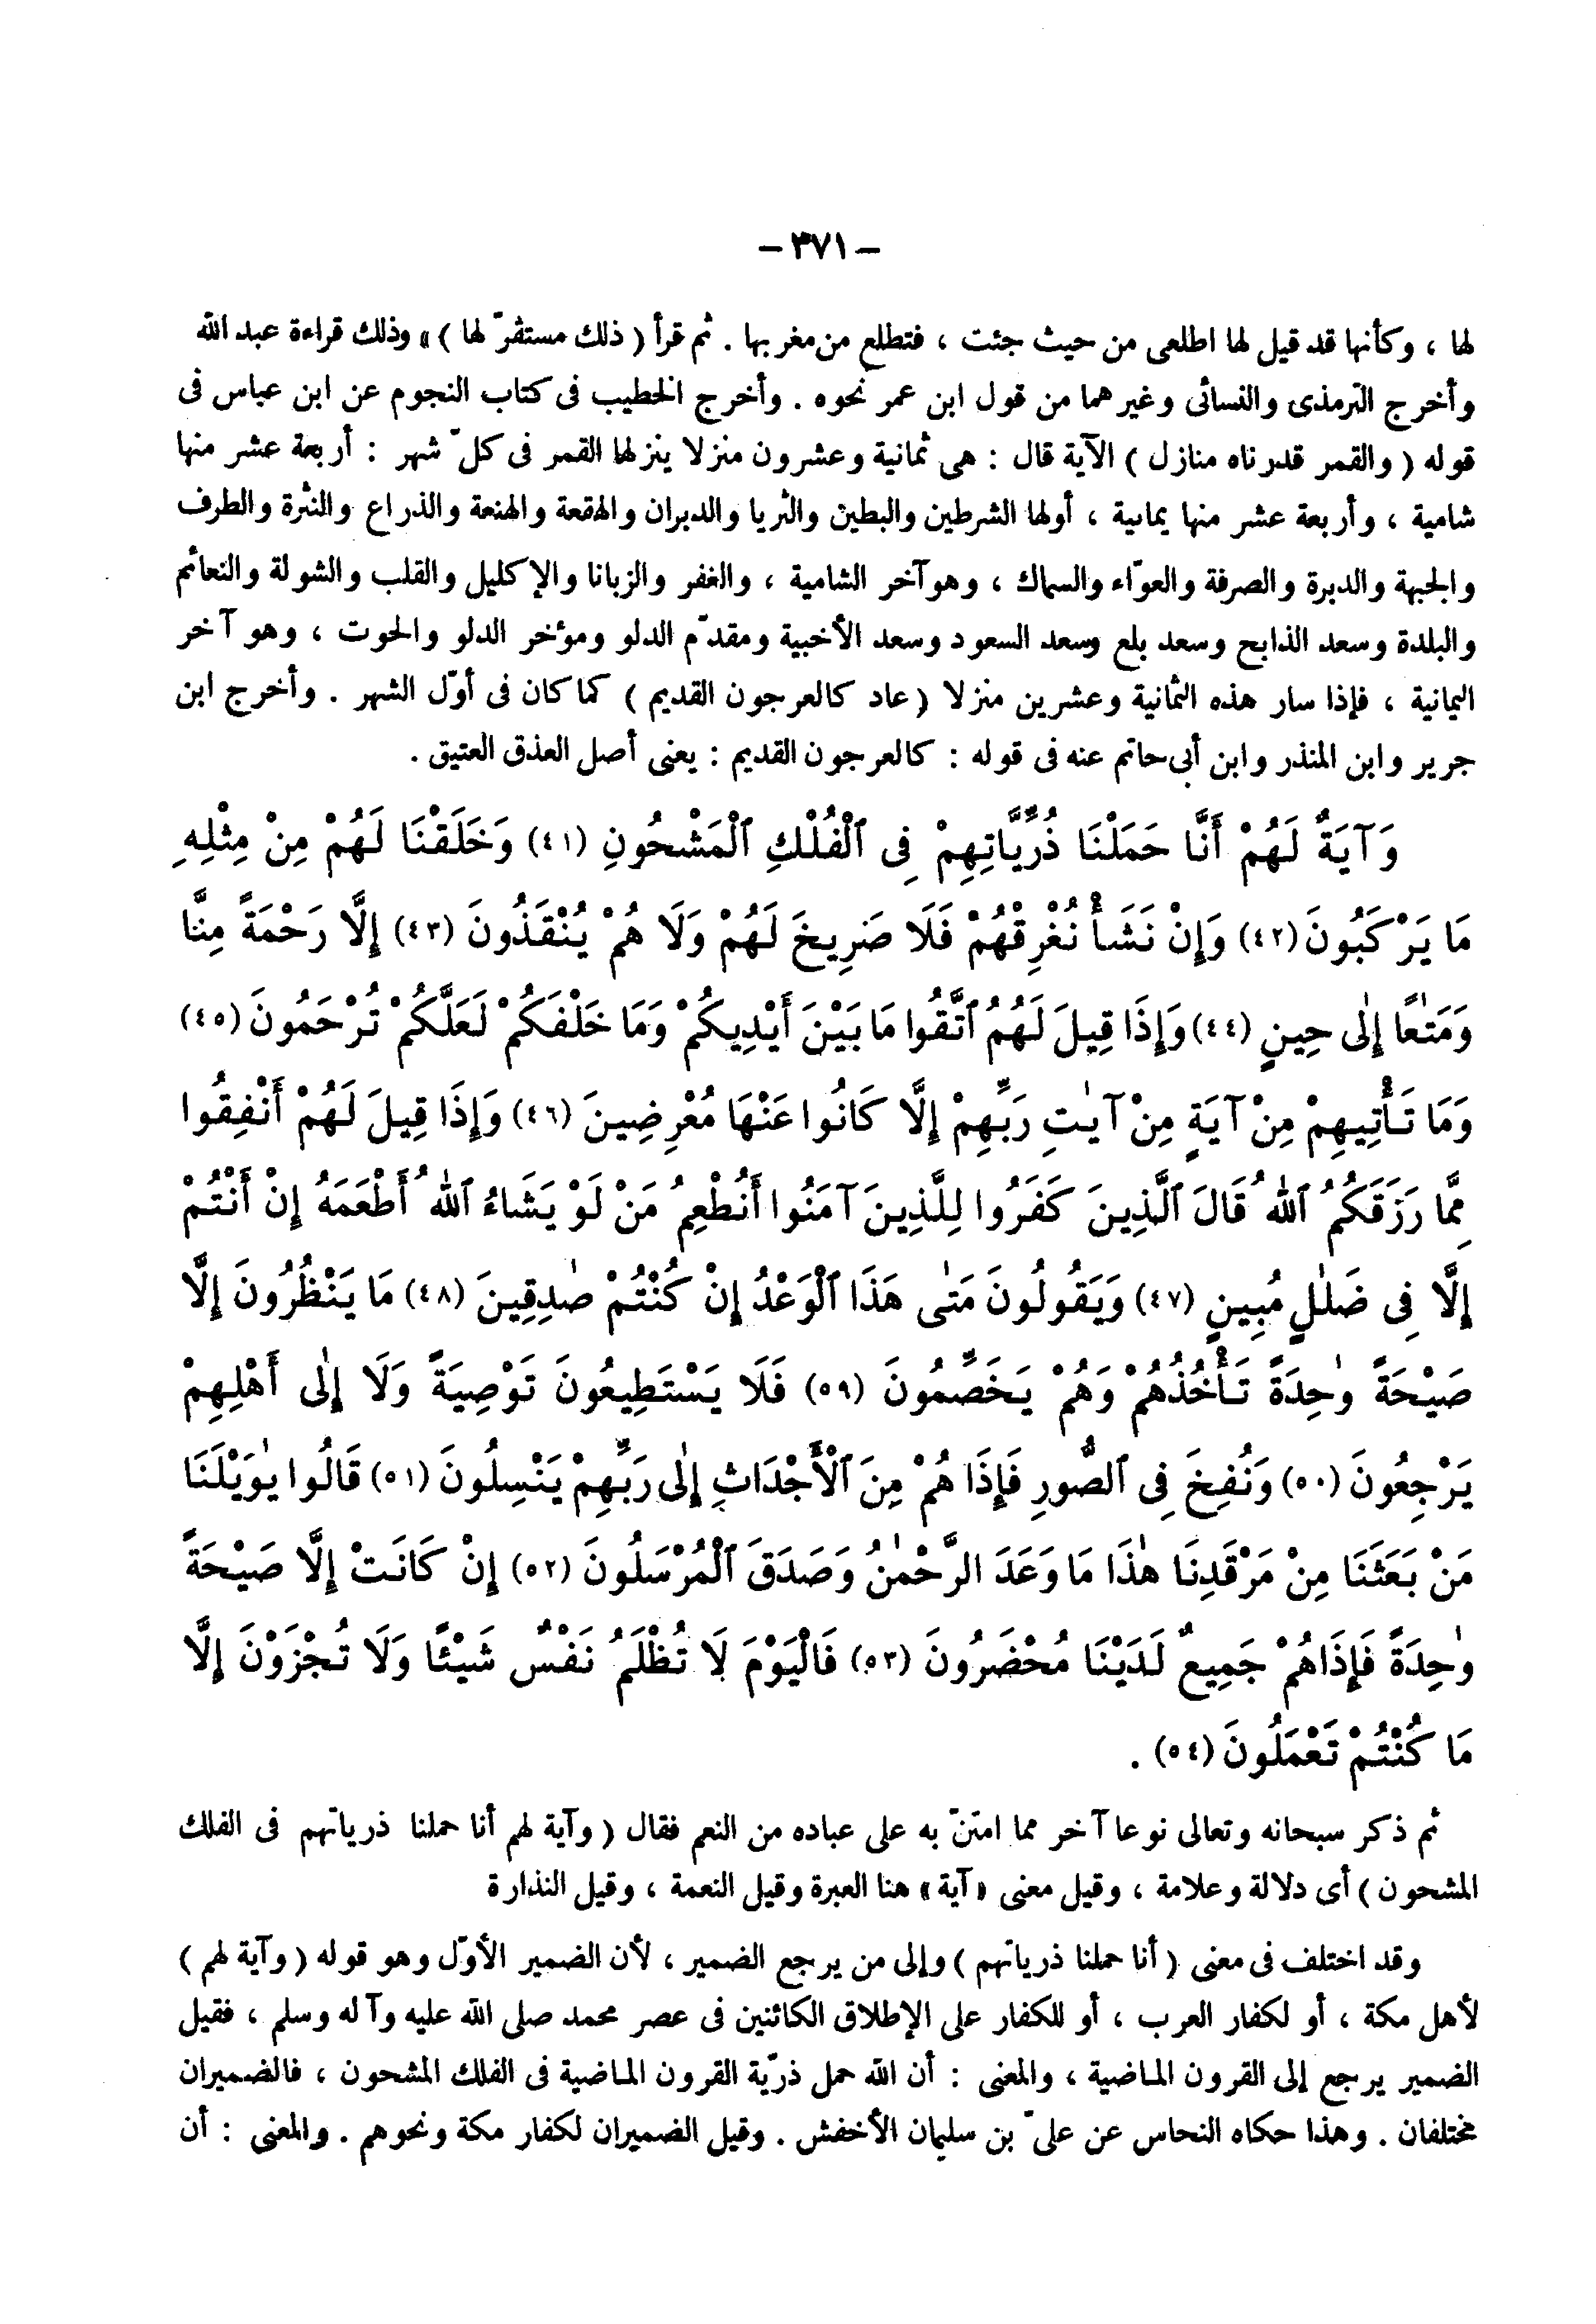 – ٣٧١ –
لها ، وكأنها قد قيل لها اطلعى من حيث جئت ، فتطلع من مغربها . ثم قرأ ( ذلك مستقرّ لها ) » وذلك قراءة عبد الله
وأخرج الترمذى والنسائى وغيرهما من قول ابن عمر نحوه . وأخرج الخطيب فى كتاب النجوم عن ابن عباس فى
قوله ( والقمر قدرناه منازل ) الآية قال : هى ثمانية وعشرون منزلا ينزلها القمر فى كلّ شهر : أربعة عشر منها
شامية ، وأربعة عشر منها يمانية ، أولها الشرطين والبطين والثريا والدبران والهقعة والهنعة والذراع والنثرة والطرف
والجبهة والدبرة والصرفة والعوّاء والسماك ، وهو آخر الشامية ، والغفر والزبانا والإكليل والقلب والشولة والنعائم
والبلدة وسعد الذابح وسعد بلع وسعد السعود وسعد الأخبية ومقدّم الدلو ومؤخر الدلو والحوت ، وهو آخر
اليمانية ، فإذا سار هذه الثمانية وعشرين منزلا ( عاد كالعرجون القديم ) كما كان فى أوّل الشهر . وأخرج ابن
جرير وابن المنذر وابن أبى حاتم عنه فى قوله : كالعرجون القديم : يعنى أصل العذق العتيق .
وَآيَةٌ لَهُمْ أَنَّا حَمَلْنَا ذُرِّيَّاتِهِمْ فِى ٱلْفُلْكِ ٱلْمَشْحُونِ (٤١) وَخَلَقْنَا لَهُمْ مِنْ مِثْلِهِ
مَا يَرْكَبُونَ (٤٢) وَإِنْ نَشَأْ نُغْرِقْهُمْ فَلَا صَرِيخَ لَهُمْ وَلَا هُمْ يُنْقَذُونَ (٤٣) إِلَّا رَحْمَةً مِنَّا
وَمَتٰعًا إِلٰى حِينٍ (٤٤) وَإِذَا قِيلَ لَهُمُ ٱتَّقُوا مَا بَيْنَ أَيْدِيكُمْ وَمَا خَلْفَكُمْ لَعَلَّكُمْ تُرْحَمُونَ (٤٥)
وَمَا تَأْتِيهِمْ مِنْ آيَةٍ مِنْ آيٰتِ رَبِّهِمْ إِلَّا كَانُوا عَنْهَا مُعْرِضِينَ (٤٦) وَإِذَا قِيلَ لَهُمْ أَنْفِقُوا
مِمَّا رَزَقَكُمُ ٱللهُ قَالَ ٱلَّذِينَ كَفَرُوا لِلَّذِينَ آمَنُوا أَنُطْعِمُ مَنْ لَوْ يَشَاءُ ٱللهُ أَطْعَمَهُ إِنْ أَنْتُمْ
إِلَّا فِى ضَلٰلٍ مُبِينٍ (٤٧) وَيَقُولُونَ مَتٰى هَذَا ٱلْوَعْدُ إِنْ كُنْتُمْ صٰدِقِينَ (٤٨) مَا يَنْظُرُونَ إِلَّا
صَيْحَةً وٰحِدَةً تَأْخُذُهُمْ وَهُمْ يَخَصِّمُونَ (٥٩) فَلَا يَسْتَطِيعُونَ تَوْصِيَةً وَلَا إِلٰى أَهْلِهِمْ
يَرْجِعُونَ (٥٠) وَنُفِخَ فِى ٱلصُّورِ فَإِذَا هُمْ مِنَ ٱلْأَجْدَاثِ إِلٰى رَبِّهِمْ يَنْسِلُونَ (٥١) قَالُوا يٰوَيْلَنَا
مَنْ بَعَثَنَا مِنْ مَرْقَدِنَا هٰذَا مَا وَعَدَ الرَّحْمٰنُ وَصَدَقَ ٱلْمُرْسَلُونَ (٥٢) إِنْ كَانَتْ إِلَّا صَيْحَةً
وٰحِدَةً فَإِذَاهُمْ جَمِيعٌ لَدَيْنَا مُحْضَرُونَ (٥٣) فَالْيَوْمَ لَا تُظْلَمُ نَفْسٌ شَيْئًا وَلَا تُجْزَوْنَ إِلَّا
مَا كُنْتُمْ تَعْمَلُونَ (٥٤) .
ثم ذكر سبحانه وتعالى نوعا آخر مما امتنّ به على عباده من النعم فقال ( وآية لهم أنا حملنا ذرياتهم فى الفلك
المشحون ) أى دلالة وعلامة ، وقيل معنى « آية » هنا العبرة وقيل النعمة ، وقيل النذارة
وقد اختلف فى معنى ( أنا حملنا ذرياتهم ) وإلى من يرجع الضمير ، لأن الضمير الأوّل وهو قوله ( وآية لهم )
لأهل مكة ، أو لكفار العرب ، أو للكفار على الإطلاق الكائنين فى عصر محمد صلى الله عليه وآله وسلم ، فقيل
الضمير يرجع إلى القرون الماضية ، والمعنى : أن الله حمل ذرّية القرون الماضية فى الفلك المشحون ، فالضميران
مختلفان . وهذا حكاه النحاس عن علىّ بن سليمان الأخفش . وقيل الضميران لكفار مكة ونحوهم . والمعنى : أن